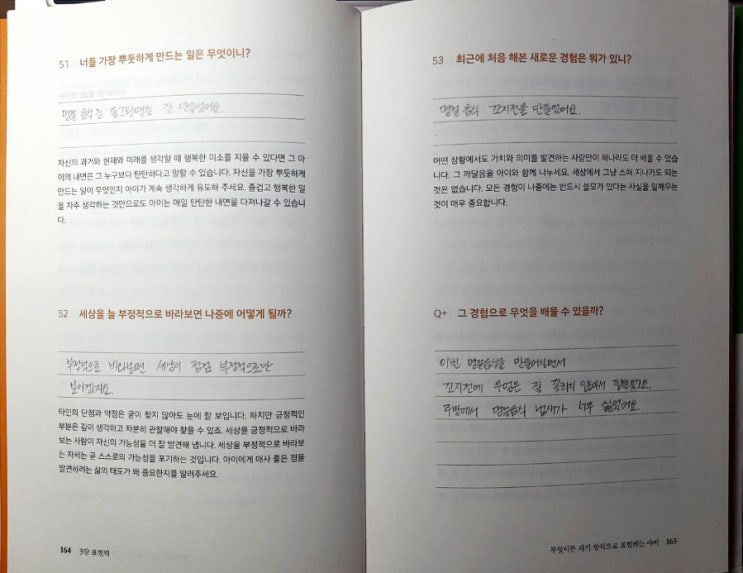 51 너를 가장 뿌듯하게 만드는 일은 무엇이니?
명절 음식 중 동그랑땡을 잘 만들었어요.
자신의 과거와 현재와 미래를 생각할 때 행복한 미소를 지을 수 있다면 그 아
이의 내면은 그 누구보다 탄탄하다고 말할 수 있습니다. 자신을 가장 뿌듯하게
만드는 일이 무엇인지 아이가 계속 생각하게 유도해 주세요. 즐겁고 행복한 일
을 자주 생각하는 것만으로도 아이는 매일 탄탄한 내면을 다져나갈 수 있습니
다.
52 세상을 늘 부정적으로 바라보면 나중에 어떻게 될까?
부정적으로 바라보면 세상이 점점 부정적으로만
보이겠지요.
타인의 단점과 약점은 굳이 찾지 않아도 눈에 잘 보입니다. 하지만 긍정적인
부분은 깊이 생각하고 차분히 관찰해야 찾을 수 있죠. 세상을 긍정적으로 바라
보는 사람이 자신의 가능성을 더 잘 발견해 냅니다. 세상을 부정적으로 바라보
는 자세는 곧 스스로의 가능성을 포기하는 것입니다. 아이에게 매사 좋은 점을
발견하려는 삶의 태도가 왜 중요한지를 알려주세요.
164 3장 표현력
53 최근에 처음 해본 새로운 경험은 뭐가 있니?
명절 음식 꼬지전을 만들었어요.
어떤 상황에서도 가치와 의미를 발견하는 사람만이 하나라도 더 배울 수 있습
니다. 그 깨달음을 아이와 함께 나누세요. 세상에서 그냥 스쳐 지나가도 되는
것은 없습니다. 모든 경험이 나중에는 반드시 쓸모가 있다는 사실을 일깨우는
것이 매우 중요합니다.
Q+ 그 경험으로 무엇을 배울 수 있을까?
이번 명절음식을 만들어보면서
꼬지전에 우엉은 잘 꽂히지 않아서
주방에서 명절음식 냄새가 너무 싫었어요.
무엇이든 자기 방식으로 표현하는 아이 165